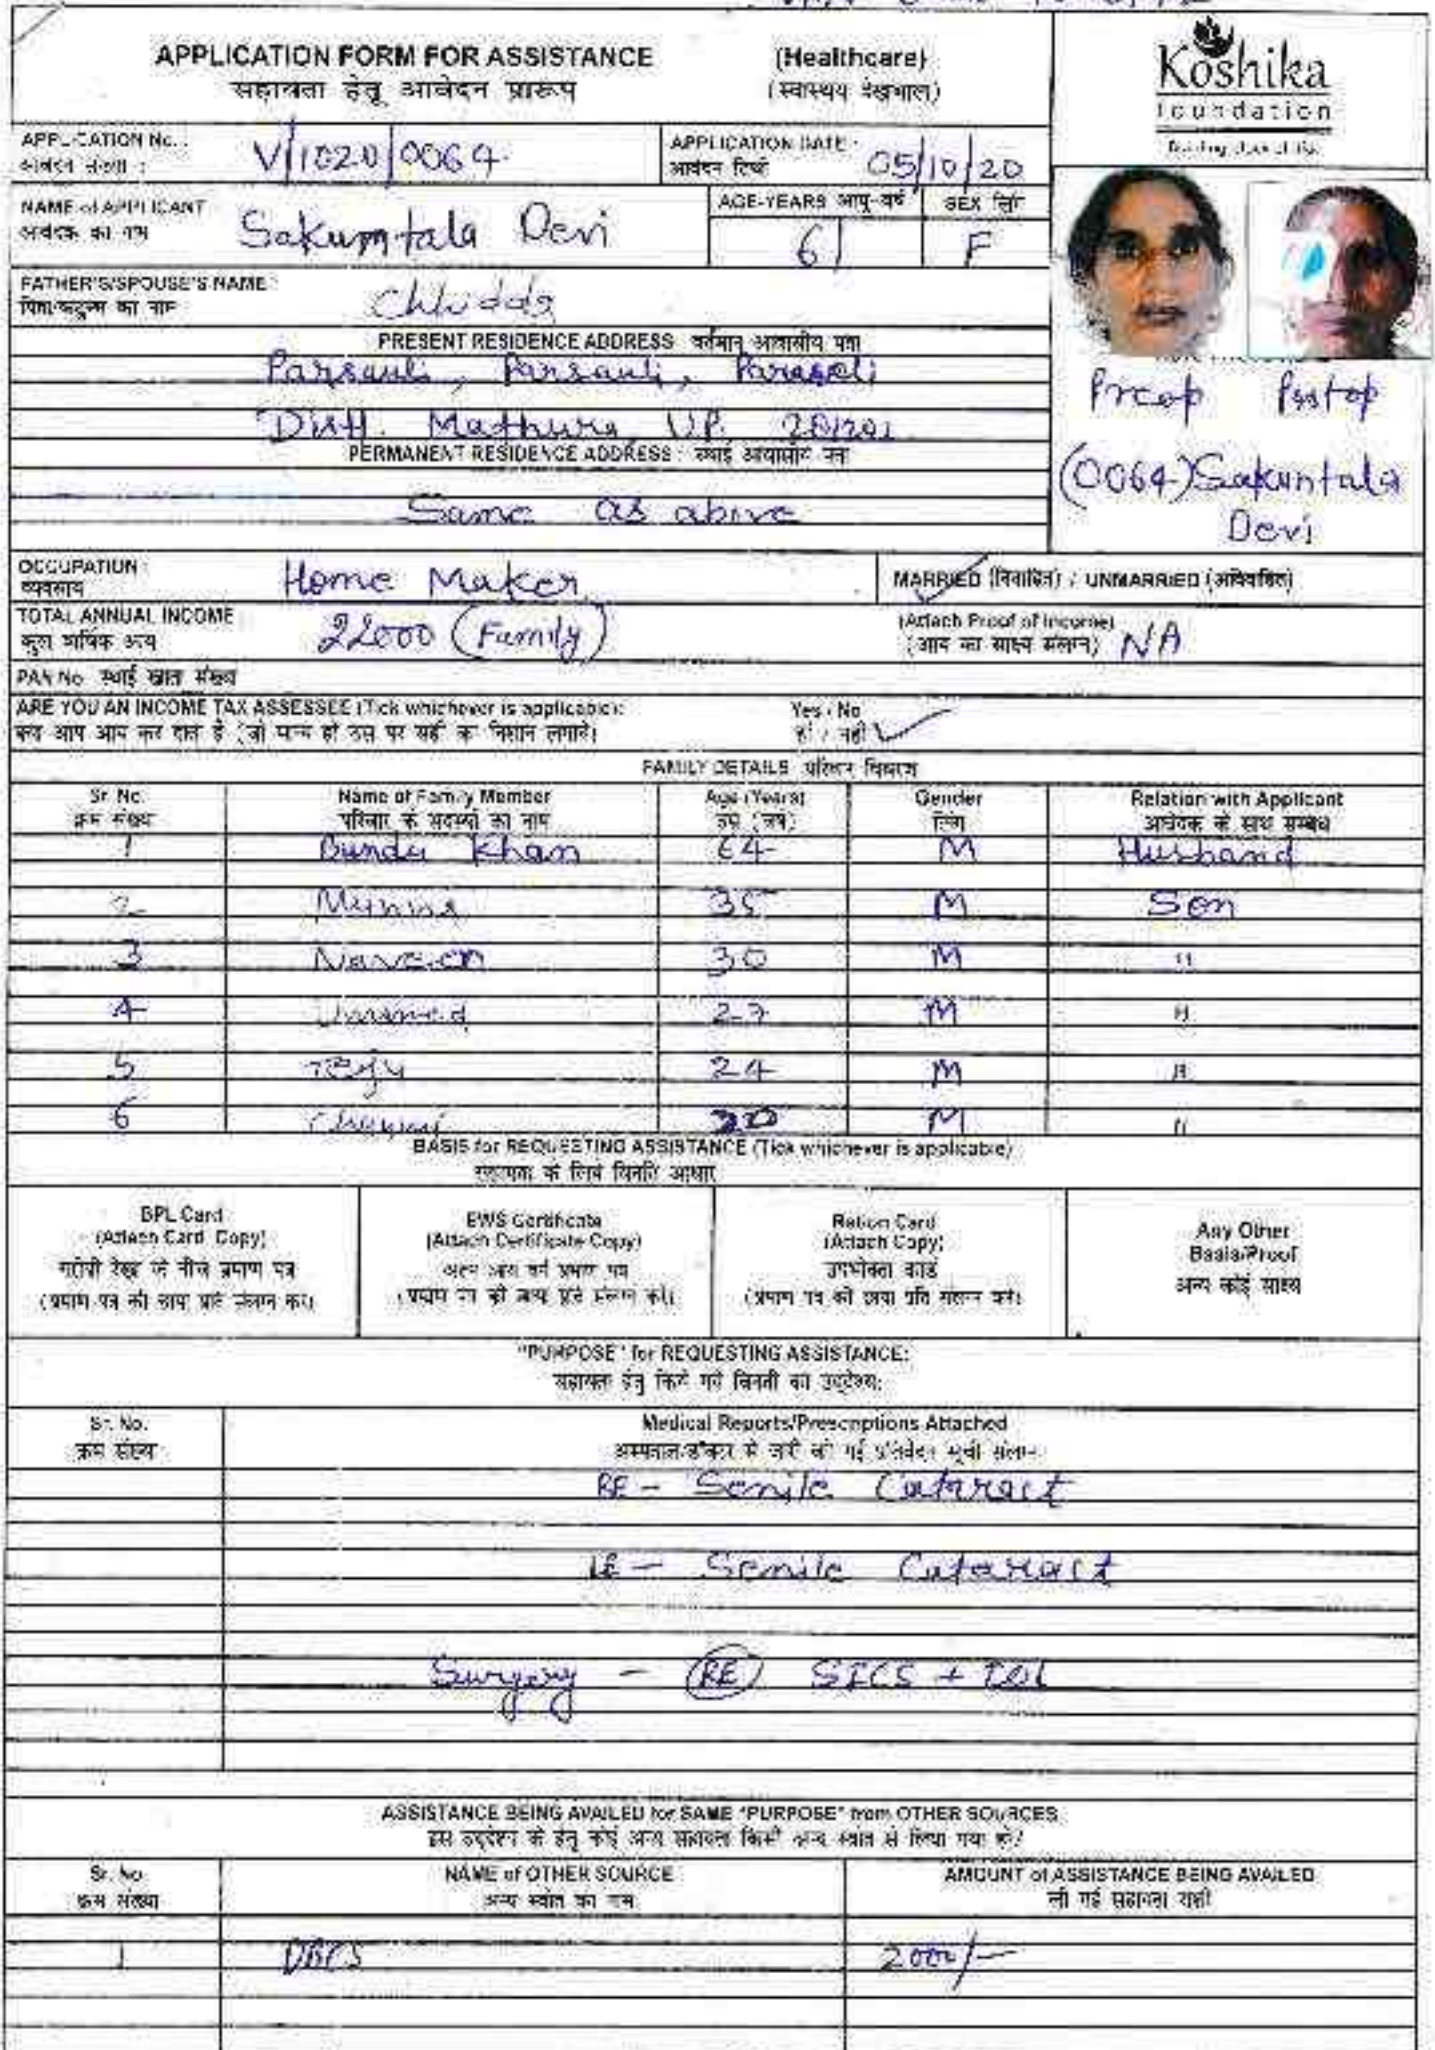 APPLICATION FORM FOR ASSISTANCE (Healthcare)
सहायता हेतू आवेदन प्रारूप (स्वास्थय देखभाल)
Koshika
foundation
APPLICATION No. : V/1020/0064
आवेदन संख्या :
APPLICATION DATE : 05/10/20
आवेदन तिथी
NAME of APPLICANT Sakumtala Devi
आवेदक का नाम
AGE-YEARS आयु-वर्ष 61
SEX लिंग F
FATHER'S/SPOUSE'S NAME : Chhidda
पिता/कटुम्ब का नाम
PRESENT RESIDENCE ADDRESS वर्तमान आवासीय पता
Parsauli, Parsauli, Parasoli
Distt. Mathura U.P.
PERMANENT RESIDENCE ADDRESS : स्थाई आवासीय पता
Same as above
Preop Postop
(0064) Sakuntala
Devi
OCCUPATION : Home Maker
व्यवसाय
MARRIED (विवाहित) / UNMARRIED (अविवाहित)
TOTAL ANNUAL INCOME 22000 (Family)
कुल वार्षिक आय
(Attach Proof of Income) NA
(आय का साक्ष्य संलग्न)
PAN No. स्थाई खाता संख्या
ARE YOU AN INCOME TAX ASSESSEE (Tick whichever is applicable): Yes / No
क्या आप आय कर दाता है (जो मान्य हो उस पर सही का निशान लगाये) हां / नहीं
FAMILY DETAILS परिवार विवरण
Sr. No. Name of Family Member Age (Years) Gender Relation with Applicant
क्रम संख्या परिवार के सदस्यों का नाम उम्र (वर्ष) लिंग आवेदक के साथ सम्बंध
1 Bundu Khan 64 M Husband
2 Munna 35 M Son
3 30 M "
4 27 M "
5 24 M "
6 20 M "
BASIS for REQUESTING ASSISTANCE (Tick whichever is applicable)
सहायता के लिये विनति आधार
BPL Card
(Attach Card Copy)
गरीबी रेखा के नीचे प्रमाण पत्र
(प्रमाण पत्र की छाया प्रति संलग्न करें)
EWS Certificate
(Attach Certificate Copy)
अल्प आय वर्ग प्रमाण पत्र
(प्रमाण पत्र की छाया प्रति संलग्न करें)
Ration Card
(Attach Copy)
उपभोक्ता कार्ड
(प्रमाण पत्र की छाया प्रति संलग्न करें)
Any Other
Basis/Proof
अन्य कोई साक्ष्य
"PURPOSE" for REQUESTING ASSISTANCE:
सहायता हेतु किये गये विनती का उद्देश्य:
Sr. No. Medical Reports/Prescriptions Attached
क्रम संख्या
RE - Senile Cataract
LE - Senile Cataract
Surgery - (RE) SICS + IOL
ASSISTANCE BEING AVAILED for SAME "PURPOSE" from OTHER SOURCES
इस उद्देश्य के हेतु कोई अन्य सहायता किसी अन्य स्त्रोत से लिया गया हो?
Sr. No. NAME of OTHER SOURCE AMOUNT of ASSISTANCE BEING AVAILED
क्रम संख्या अन्य स्त्रोत का नाम ली गई सहायता राशी
1 DBCS 2000/-